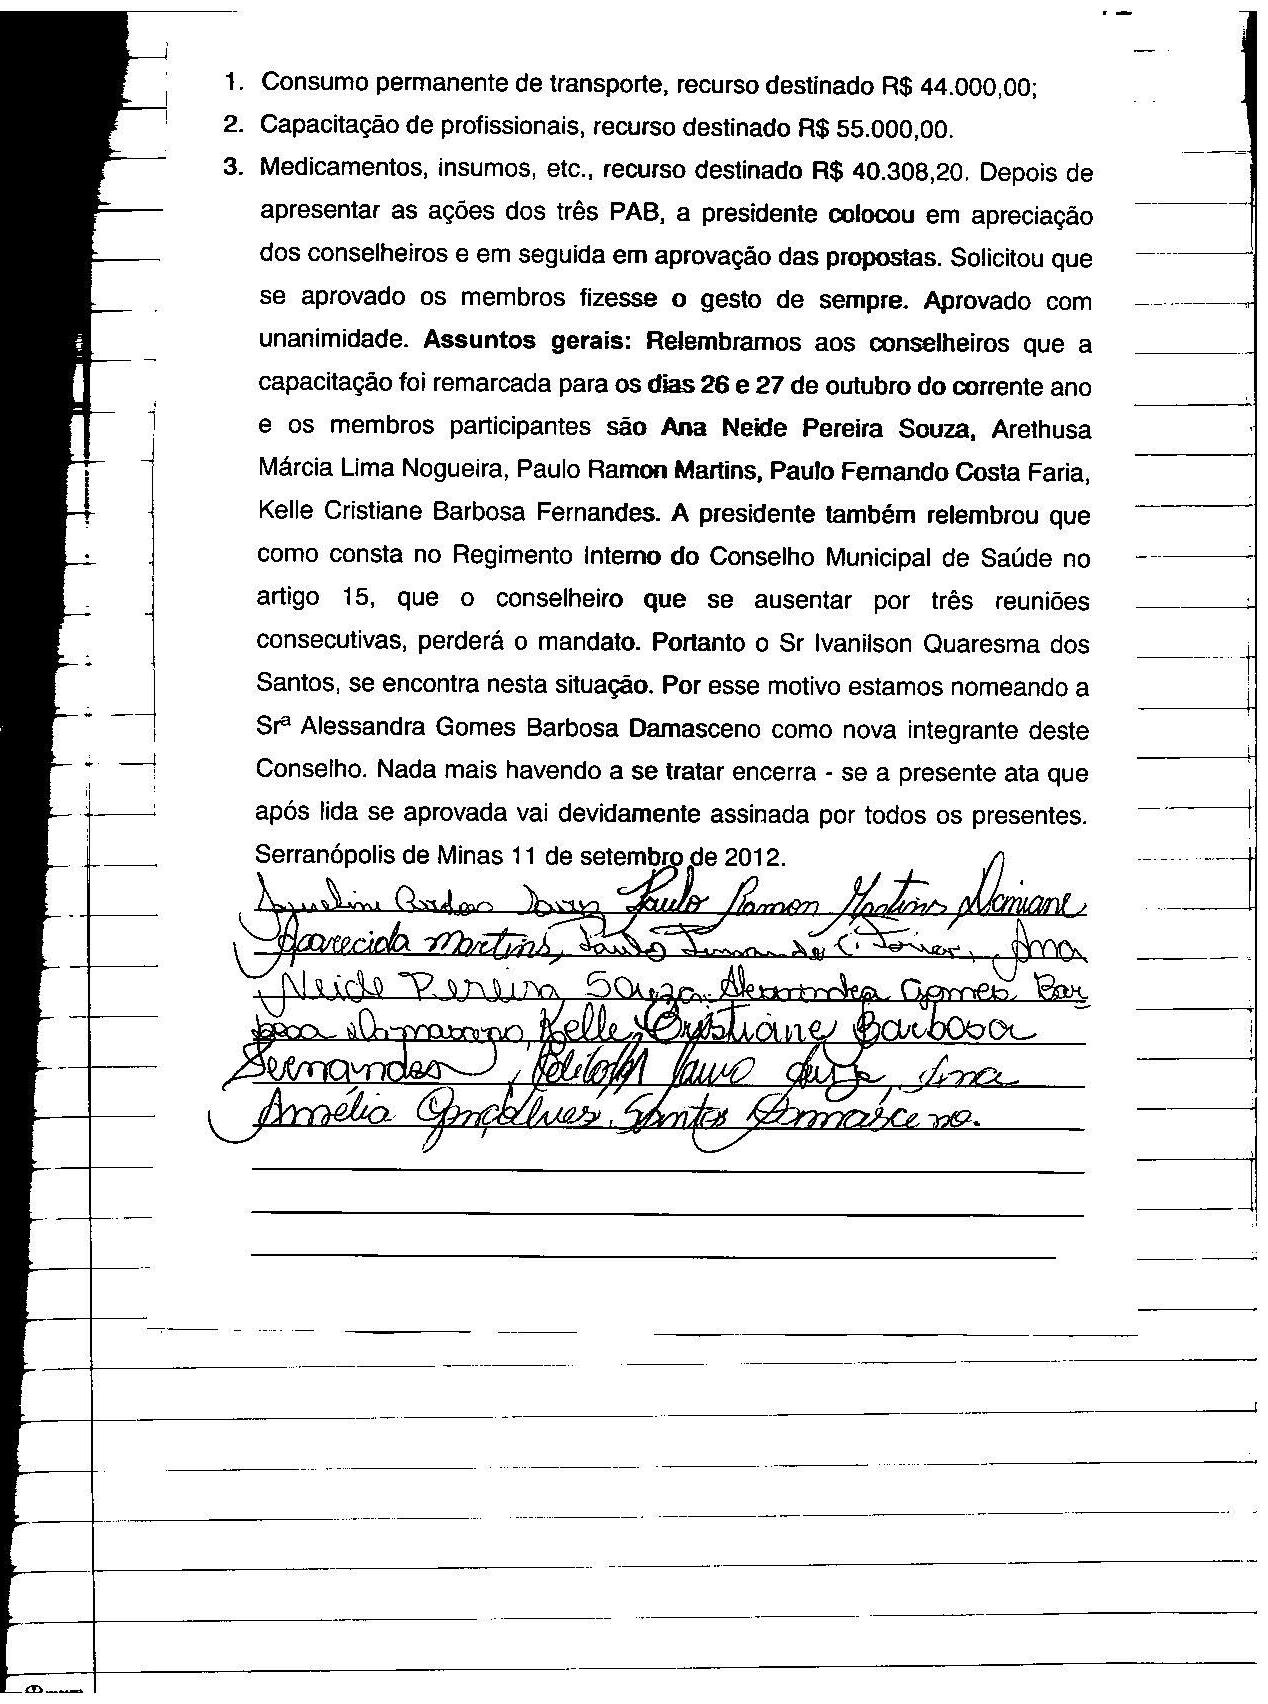 1. Consumo permanente de transporte, recurso destinado R$ 44.000,00;
2. Capacitação de profissionais, recurso destinado R$ 55.000,00.
3. Medicamentos, insumos, etc., recurso destinado R$ 40.308,20. Depois de
apresentar as ações dos três PAB, a presidente colocou em apreciação
dos conselheiros e em seguida em aprovação das propostas. Solicitou que
se aprovado os membros fizesse o gesto de sempre. Aprovado com
unanimidade. Assuntos gerais: Relembramos aos conselheiros que a
capacitação foi remarcada para os dias 26 e 27 de outubro do corrente ano
e os membros participantes são Ana Neide Pereira Souza, Arethusa
Márcia Lima Nogueira, Paulo Ramon Martins, Paulo Fernando Costa Faria,
Kelle Cristiane Barbosa Fernandes. A presidente também relembrou que
como consta no Regimento Interno do Conselho Municipal de Saúde no
artigo 15, que o conselheiro que se ausentar por três reuniões
consecutivas, perderá o mandato. Portanto o Sr Ivanilson Quaresma dos
Santos, se encontra nesta situação. Por esse motivo estamos nomeando a
Srª Alessandra Gomes Barbosa Damasceno como nova integrante deste
Conselho. Nada mais havendo a se tratar encerra - se a presente ata que
após lida se aprovada vai devidamente assinada por todos os presentes.
Serranópolis de Minas 11 de setembro de 2012.
Paulo Ramon Martins Daniane
Aparecida Martins, Paulo Fernando C. Faria, Ana
Neide Pereira Souza, Alessandra Gomes Bar
bosa Damasceno, Kelle Cristiane Barbosa
Fernandes, Ana
Amélia Gonçalves Santos Damasceno.